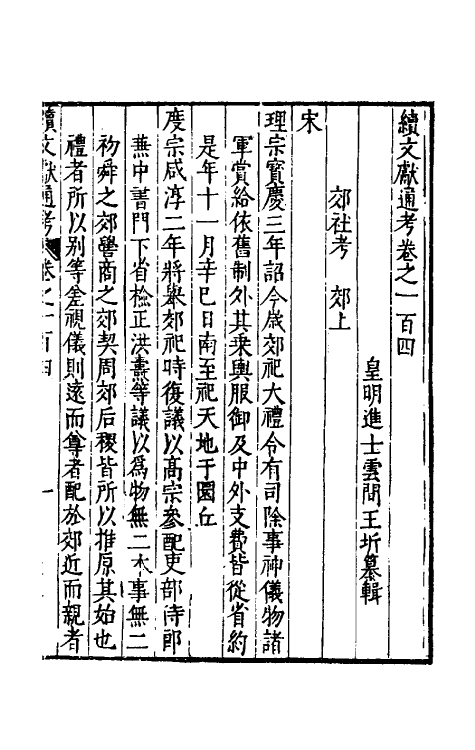 續文獻通考卷之一百四
皇明進士雲間王圻纂輯
郊社考 郊上
宋
理宗寶慶三年詔今歲郊祀大禮令有司除事神儀物諸
軍賞給依舊制外其乘輿服御及中外支費皆從省約
是年十一月辛巳日南至祀天地于圜丘
度宗咸淳二年將舉郊祀時復議以高宗參配吏部侍郎
兼中書門下省檢正洪燾等議以為物無二本事無二
礿舜之郊嚳商之郊契周郊后稷皆所以推原其始也
禮者所以别等差視儀則遠而尊者配於郊近而親者
續文獻通考 卷之一百四 一